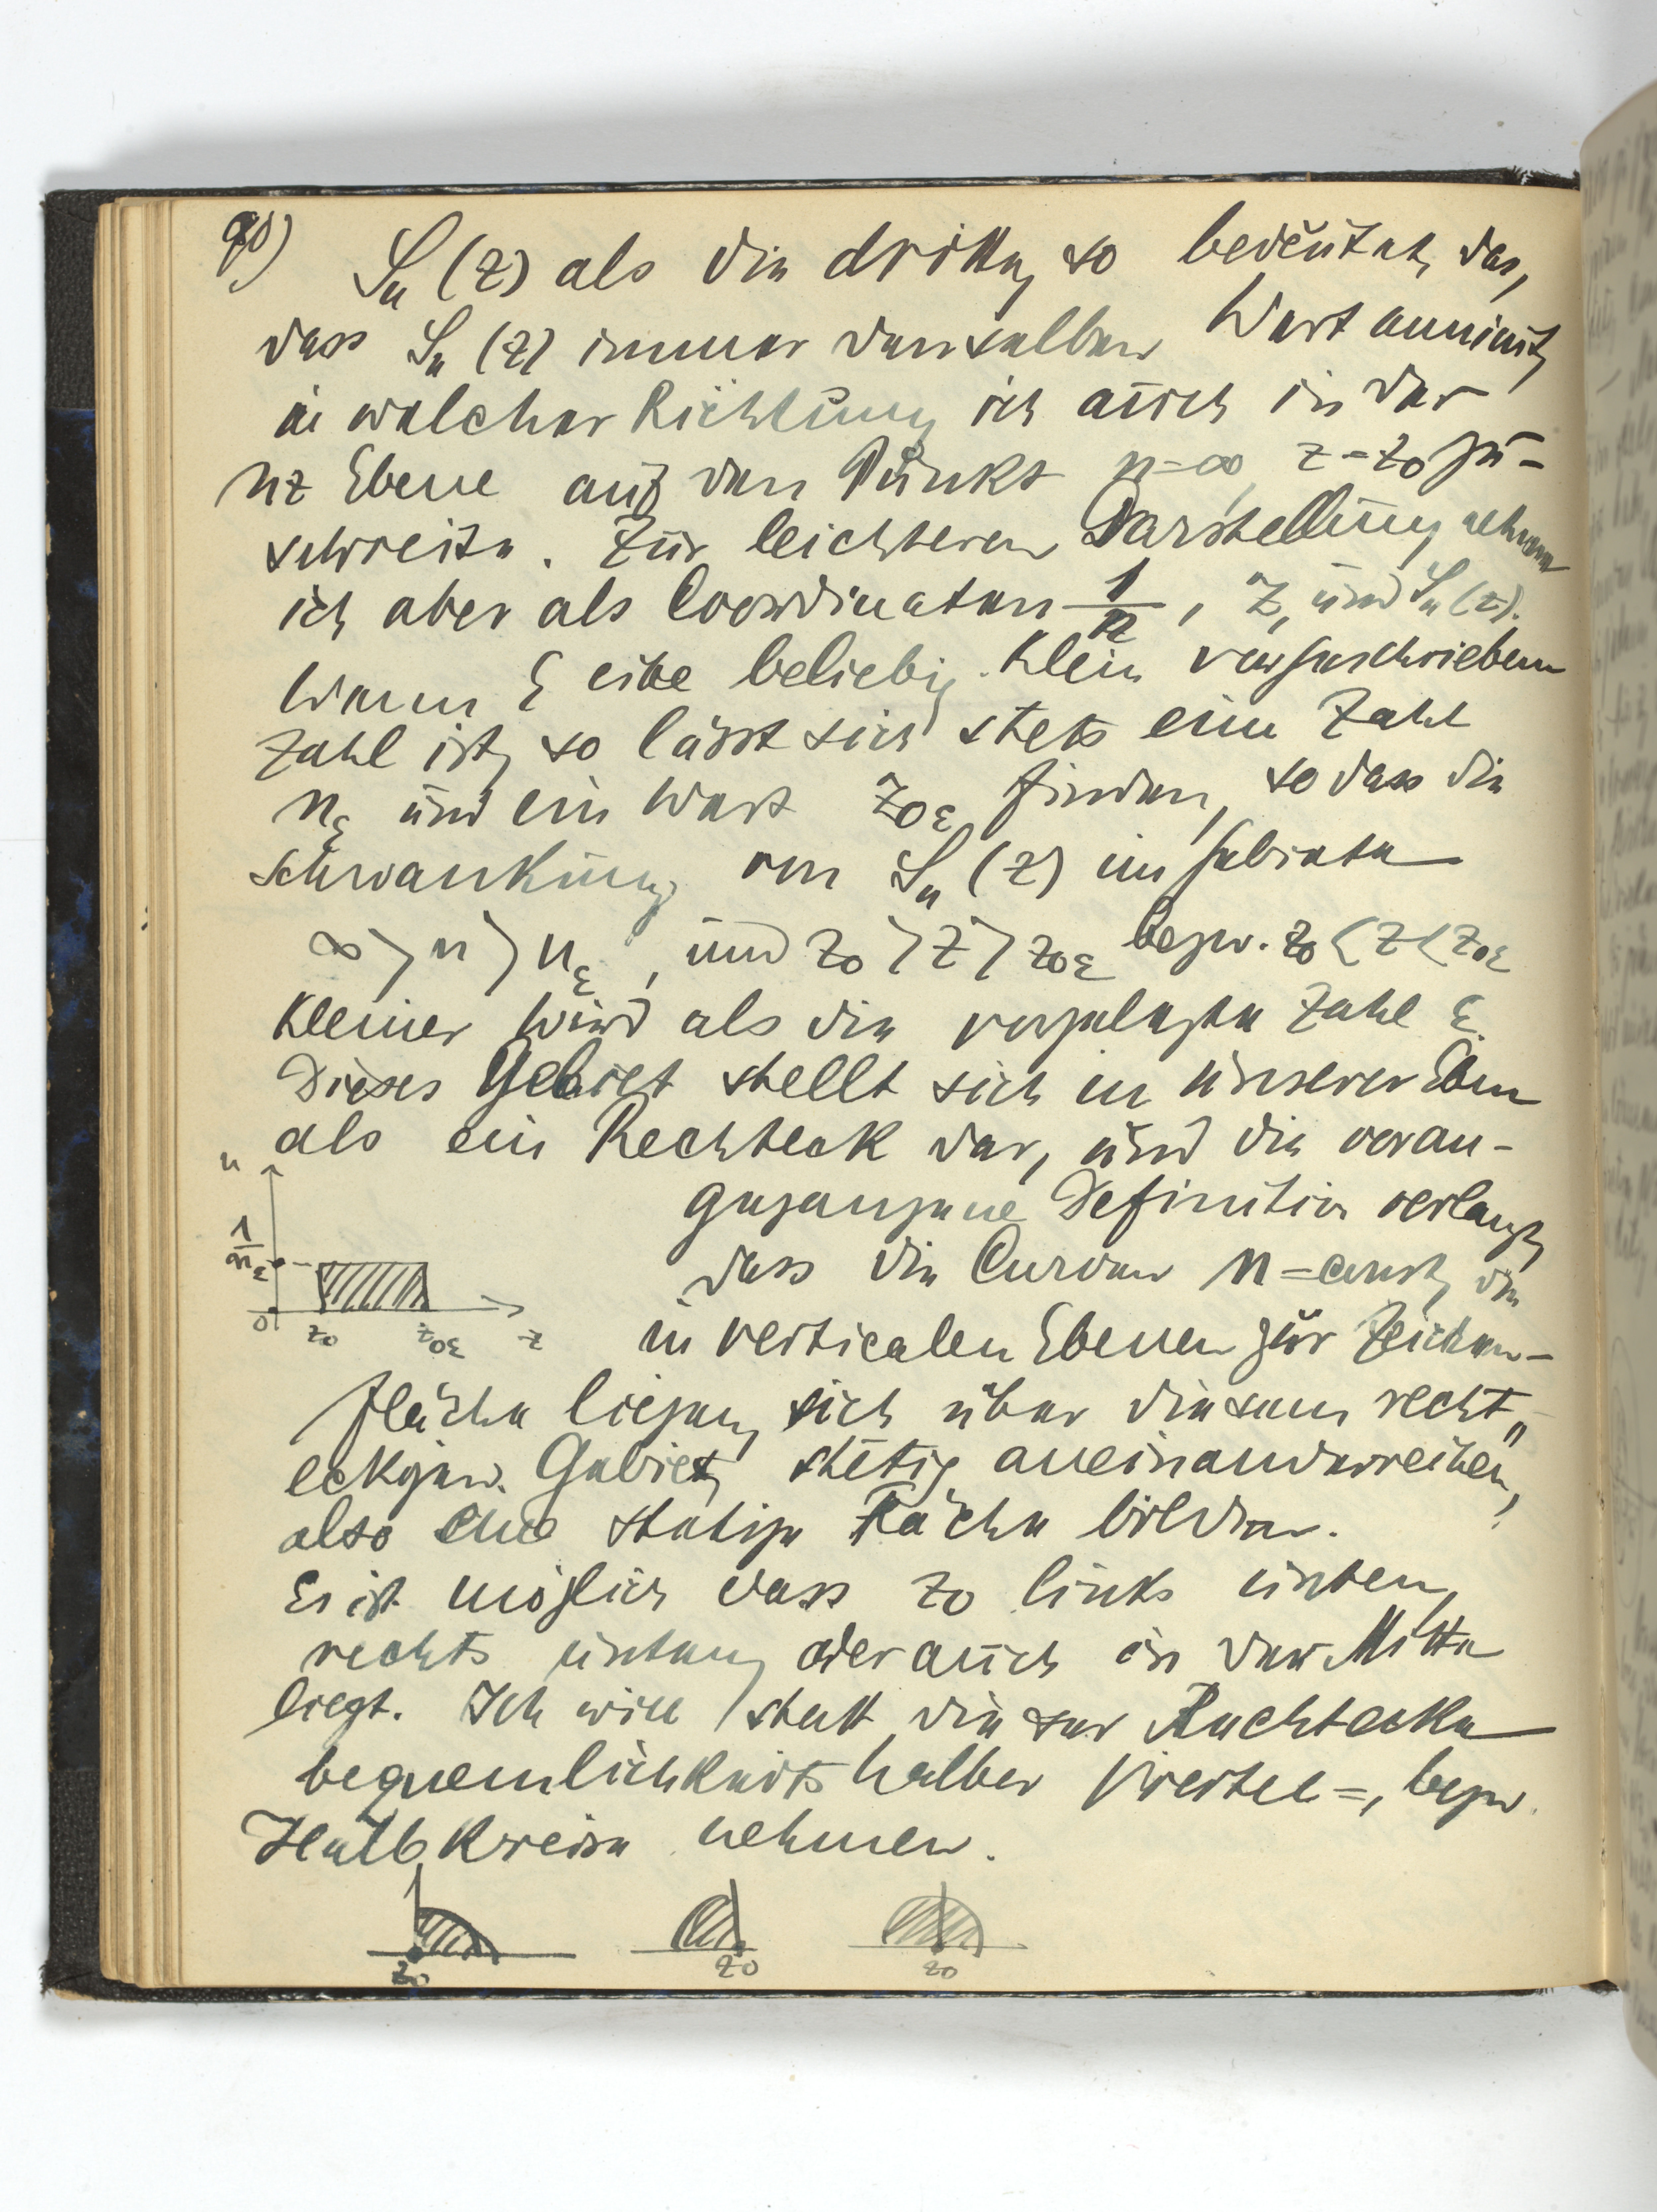 90)
S_n (z) als die dritte, so bedeutet, das,
dass S_n (z) immer denselben Wert annimt,
in welcher Richtung ich auch in der
nz Ebene auf den Punkt n=∞, z=z₀ zu-
schreite. Zur leichteren Darstellung nehme
ich aber als Coordinaten 1/n, z, und S_n(z).
Wenn ε eine beliebig klein vorgeschriebene
Zahl ist, so lässt sich stets eine Zahl
n_ε und ein Wert z₀_ε finden, so dass die
Schwankung von S_n (z) im Gebiete
∞ > n > n_ε, und z₀ > z > z₀_ε bezw. z₀ < z < z₀_ε
kleiner wird als die vorgelegte Zahl ε.
Dieses Gebiet stellt sich in unserer Ebene
als ein Rechteck dar, und die voran-
gegangene Definition verlangt,
dass die Curven n = const, die
in verticalen Ebenen zur Zeichen-
fläche liegen, sich über diesem recht„
eckigen Gebiet, stetig aneinanderreihen,
also eine stetige Fläche bilden.
Es ist möglich dass z₀ links unten,
rechts unten, oder auch in der Mitte
liegt. Ich will statt dieser Rechtecke
bequemlichkeitshalber Viertel=, bezw.
Halbkreise nehmen.
n
1/n_ε
0 z₀ z₀_ε z
z₀ z₀ z₀